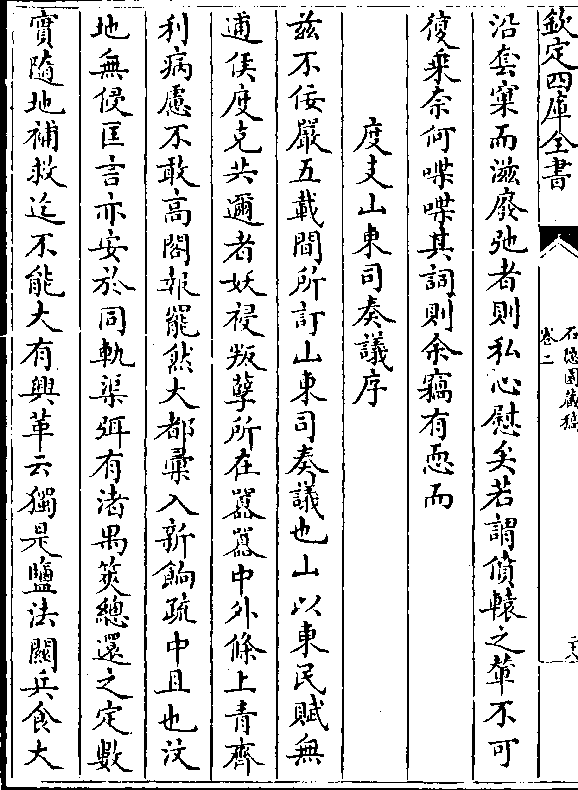 欽定四庫全書
石隱園藏稿
卷二
沿套窠而滋廢弛者則私心慰矣若謂僨轅之葷不可
復乗奈何喋喋其詞則余竊有恧而
度支山東司奏議序
兹不佞嚴五載間所訂山東司奏議也山以東民賦無
逋侯度克共邇者妖祲叛孽所在囂囂中外條上青齊
利病慮不敢髙閣報罷然大都彚入新餉疏中且也汶
地無侵匡言亦安於同軌渠弭有渚禺筴總還之定數
實隨地補救迄不能大有興革云獨是鹽法闗兵食大